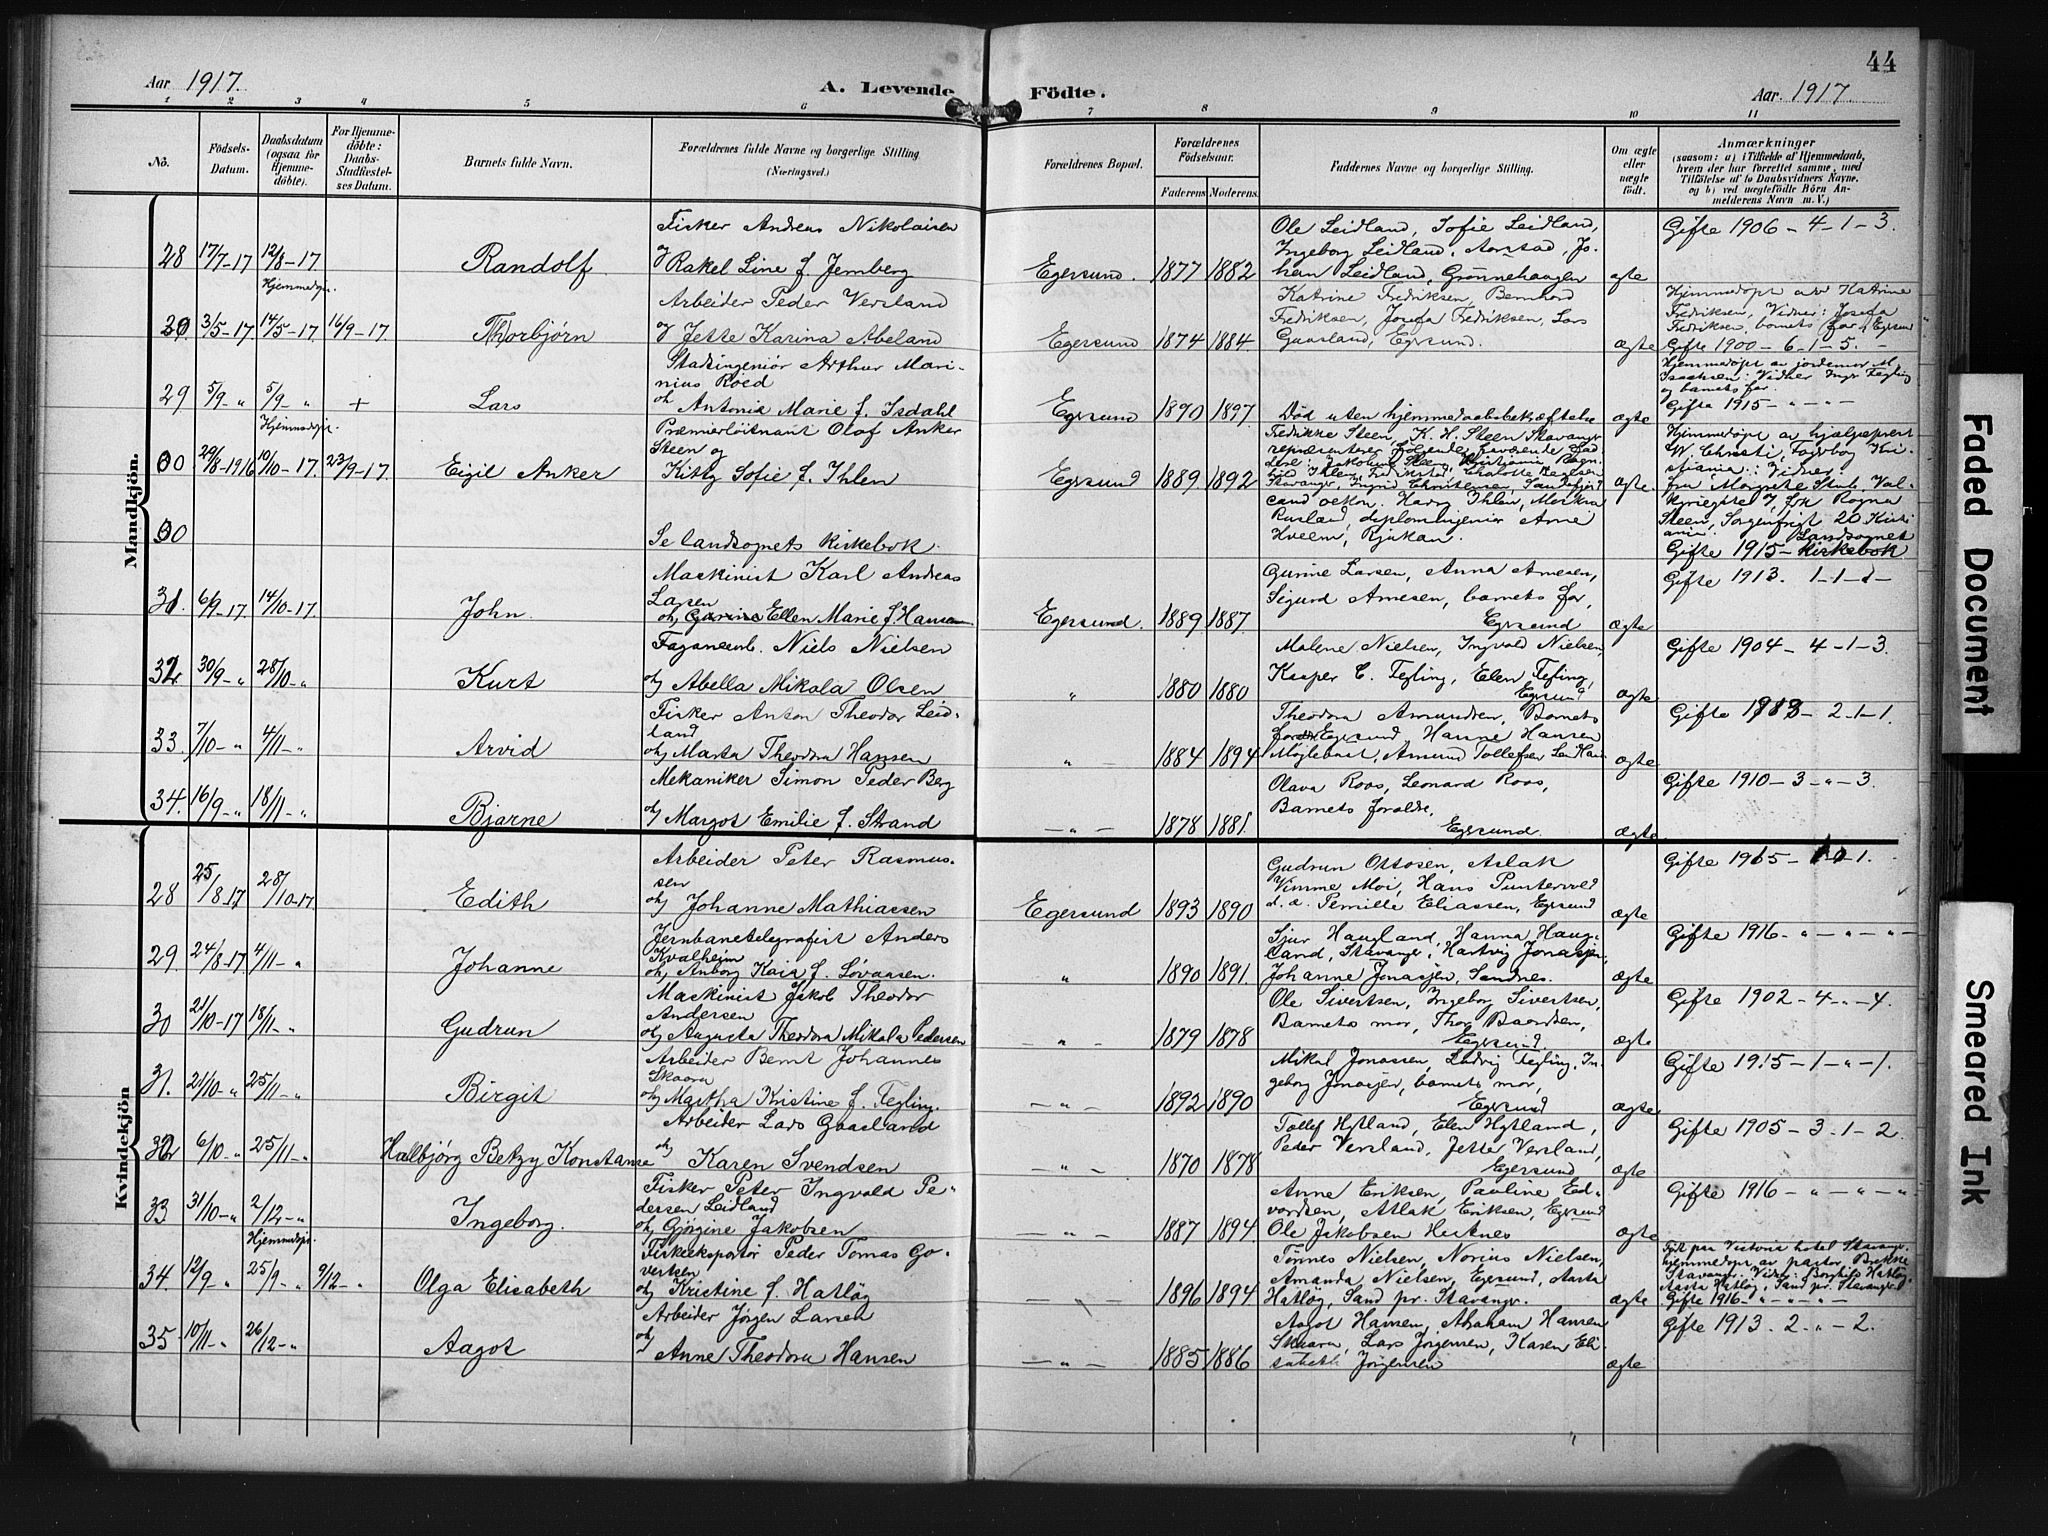 44
Aar 1917.
A. Levende Födte.
Aar 1917
1 2 3 4 5 6 7 8 9 10 11
No.
Födsels-Datum.
Daabsdatum (ogsaa for Hjemme-döbte).
For Hjemme-döbte: Daabs-Stadfæstel-ses Datum.
Barnets fulde Navn.
Forældrenes fulde Navne og borgerlige Stilling (Næringsvei.)
Forældrenes Bopæl.
Forældrenes Födselsaar.
Faderens. Moderens.
Faddernes Navne og borgerlige Stilling.
Om ægte eller uægte födt.
Anmærkninger
(saasom: a) i Tilfælde af Hjemmedaab, hvem der har forrettet samme, med Tilföielse af to Daabsvidners Navne, og b) ved uægtefödte Börn An-melderens Navn m. V.)
Mandkjön.
Fisker Andreas Nikolaisen
Ole Leidland, Sofie Leidland,
Gifte 1906 - 4 - 1 - 3.
Ingeborg Leidland, Aarstad, Jo-
28 17/7-17 12/8-17. Randolf. og Rakel Line f. Jernberg Egersund. 1877 1882 han Leidland, Grønnehaugen ægte
Hjemmedøpt.
Arbeider Peder Versland
Katrine Fredriksen, Bernhard
Hjemmedøpt av Katrine
Fredriksen, Josefa Fredriksen, Lars
Fredriksen, Vidner: Josefa
Fredriksen, barnets far, Egersund
3/5-17 14/5-17 16/9-17 Thorbjørn og Jette Karina Abeland Egersund 1874 1884. Gaasland, Egersund. ægte Gifte 1900 - 6 - 1 - 5. -
Stadsingeniør Arthur Mari-
nius Roed
Hjemmedøpt av jordemor M.
Isachsen: Vidner Ingr. Tegling
og barnets far.
29 5/9- " 5/9- " + Lars og Antonia Marie f. Isdahl Egersund 1890 1897. Død uten hjemmedaabsbekræftelse ægte Gifte 1915 - " - " -
Hjemmedøpt.
Premierløitnant Olaf Anker
Steen og
Fredrikke Steen, K. H. Steen Stavanger
repræsenterer følgende fraværende fad-
30 29/8-1916 10/10-17. 23/9-17 Eigil Anker Kitty Sofie f. Ihlen Egersund 1889. 1892 ægte.
Stavanger, Ingrid Christensen Sandefjord
cand oekon. Harry Ihlen, Morkna
Rusland, diplomingeniør Arne
Hveem, Rjukan.
Hjemmedøpt av hjælpeprest
W. Christi, Fagerborg Kri-
stiania: Vidner:
fru Margrete Stub, Val-
kyriegte 7, frk Ragna
Steen, Sorgenfrigt 20 Kristi
ania.
Gifte 1915 -
30 Se landsognets kirkebok.
Landsognet
kirkebok
Maskinist Karl Andreas
Larsen
Gurine Larsen, Anna Arnesen,
Gifte 1913. 1 - 1 - 1 -
Sigurd Arnesen, barnets far,
31. 6/9-17. 14/10-17. John. og Ellen Marie f. Hansen Egersund. 1889. 1887. Egersund ægte
Niels Nielsen
Malene Nielsen, Ingvald Nielsen,
Gifte 1904 - 4 - 1 - 3.
32. 30/9-" 28/10-" Kurt og Abella Mikala Olsen " 1880 1880 Kasper C. Tegling, Elen Tegling, Egersund ægte
Fisker Anton Theodor Leid-
land
Theodora Amundsen, Barnets
Gifte 1913 - 2 - 1 - 1.
Egersund, Hanne Hansen
33. 7/10-" 4/11-" Arvid og Marta Theodora Hansen " 1884 1894 Møglebust, Amund Tollefsen ægte
Mekaniker Simon Peder Berg
Olava Roos, Leonard Roos,
Gifte 1910 - 3 - " - 3.
Barnets forældre,
34. 16/9-" 18/11-" Bjarne og Margot Emilie f. Strand - " - 1878 1881. Egersund. ægte
Kvindekjön
Arbeider Peter Rasmus-
sen
Gudrun Ottosen, Aslak
Gifte 1915 - 1 - 0 - 1.
Vimme Moi, Hans Puntervold
28 25/8-17 28/10-17. Edith og Johanne Mathiassen Egersund 1893 1890 d. æ. Pernille Eliassen, Egersund ægte
Jernbanetelegrafist Anders
Kvalheim
Sjur Haugland, Hanna Haug-
Gifte 1916 - " - " - " -
land, Stavanger, Hartvig Jonassen,
29. 24/8-17 4/11-" Johanne og Anborg Kaia f. Løvaasen. " 1890 1891. Johanne Jonassen, Sandnes. ægte
Maskinist Jakob Theodor
Andersen
Ole Sivertsen, Ingeborg Sivertsen,
Gifte 1902 - 4 - " - 4.
Barnets mor, Thor Baardsen,
30 21/10-17 18/11-" Gudrun og Augusta Theodora Mikala Pedersen - " - 1879 1878 Egersund. ægte
Arbeider Bernt Johannes
Skaara
Mikal Jonassen, Ludvig Tegling, In-
Gifte 1915 - 1 - " - 1.
geborg Jonassen, barnets mor,
31. 21/10-" 25/11-" Birgit og Martha Kristine f. Tegling. - " - 1892 1890 Egersund ægte
Arbeider Lars Gaasland
Tollef Hytland, Elen Hytland,
Gifte 1905 - 3 - 1 - 2.
Peder Versland, Jette Versland,
32 6/10-" 25/11-" Halbjørg Betzy Konstanse og Karen Svendsen - " - 1870 1878 Egersund ægte
Fisker Peter Ingvald Pe-
dersen Leidland
Anne Eriksen, Pauline Ed-
Gifte 1916 - " - " - "
vardsen, Atlak Eriksen, Egersund
33 31/10-" 2/12-" Ingeborg. og Gjørgine Jakobsen - " - 1887 1894 Ole Jakobsen Hestnes ægte
Hjemmedøpt.
Fiskeeksportør Peder Tomas Go-
vertsen
Tønnes Nielsen, Norius Nielsen,
Født paa Victoria hotel Stavanger.
Hjemmedøpt av pastor Brekke
Stavanger. Vidner: Borghild Hatløy,
Aasta Hatløy, Sand pr. Stavanger
Amanda Nielsen, Egersund, Aasta
34. 12/9 " 25/9-" 9/12-" Olga Elisabeth og Kristine f. Hatløy 1896 1894 Hatløy, Sand pr. Stavanger. ægte Gifte 1916 - " - " - " -
Arbeider Jørgen Larsen
Aagot Hansen, Abraham Hansen
Gifte 1913. 2 - " - 2.
Skaara, Lars Jørgensen, Karen Eli-
35 10/11-" 26/12-" Aagot og Anne Theodora Hansen - " - 1885 1886 sabeth Jørgensen ægte
Faded Document
Smeared Ink